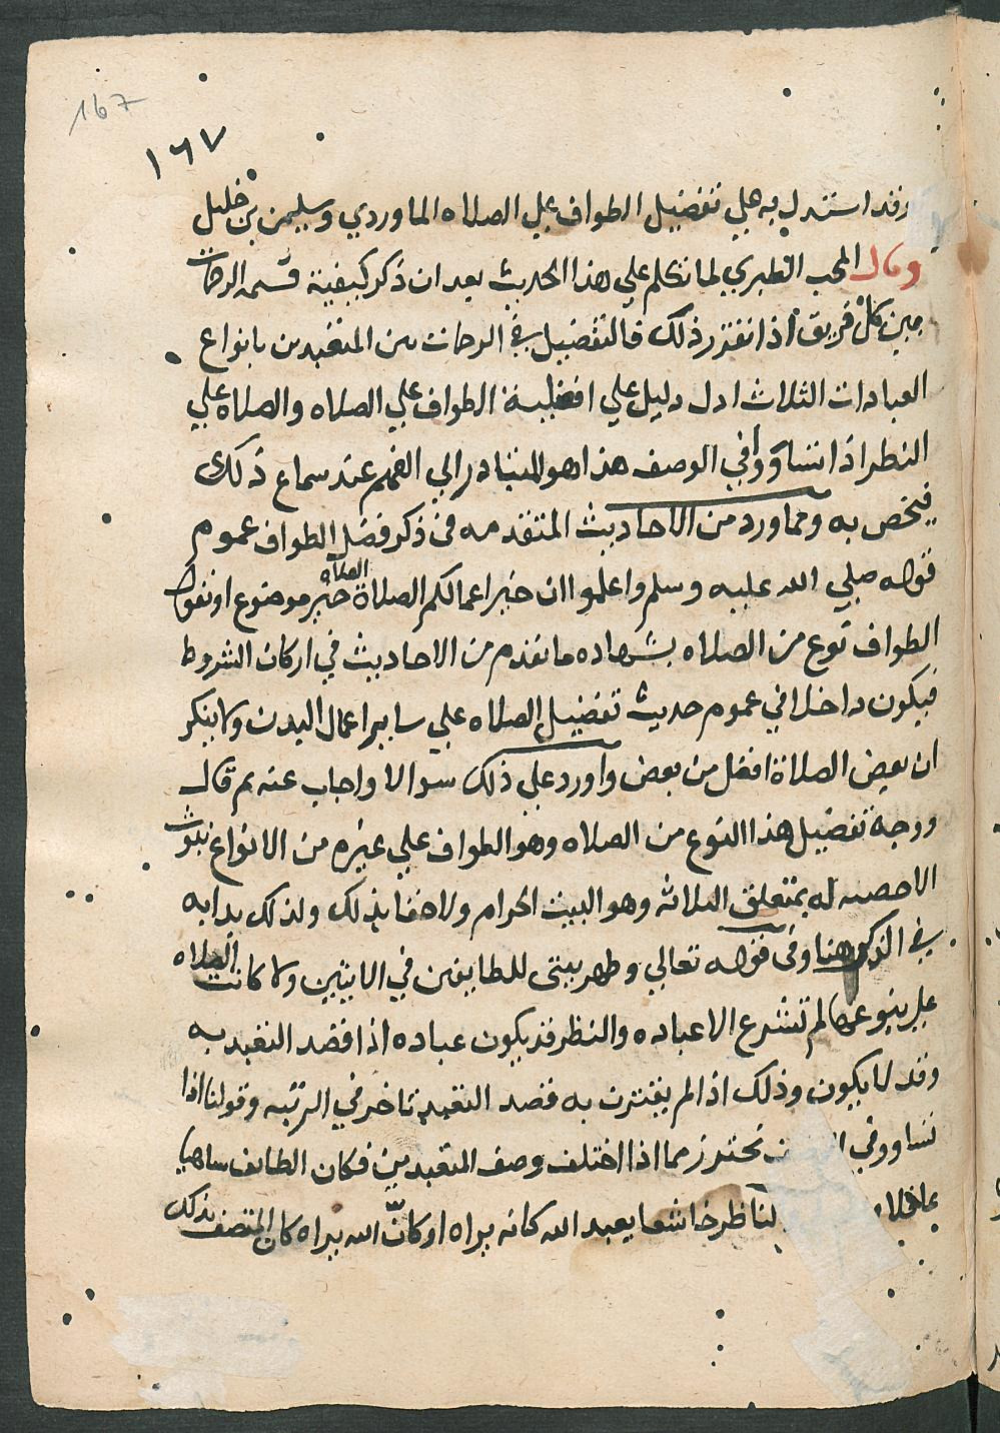 167
١٦٧
وقد استدل به علي تفضيل الطواف علي الصلاه الماوردي وسليمن بن خليل
وقال المحب الطبري لما تكلم علي هذا الحديث بعد ان ذكر كيفية قسمه الرحمات
بين كل فريق اذا تقرر ذلك فالتفضيل في الرحمات بين المتعبدين بانواع
العبادات الثلاث ادل دليل علي افضلية الطواف علي الصلاه والصلاة علي
النظر اذا تساووا في الوصف هذا هو المتبادر الي الفهم عند سماع ذلك
فيخص به ومما ورد من الاحاديث المتقدمه في ذكر فضل الطواف عموم
قوله صلي الله عليه وسلم واعلموا ان خير اعمالكم الصلاة الصلاه خير موضوع او نقول
الطواف نوع من الصلاه بشهاده ما تقدم من الاحاديث في اركان الشروط
فيكون داخلا في عموم حديث تفضيل الصلاه علي ساير اعمال البدن ولا ينكر
ان بعض الصلاة افضل من بعض واورد علي ذلك سوالا واجاب عنه ثم قال
ووجه تفضيل هذا النوع من الصلاه وهو الطواف علي غيره من الانواع ثبوت
الاخصيه له بمتعلق الثلاثه وهو البيت الحرام ولا خفا بذلك ولذلك بدا به
في الذكر هنا وفي قوله تعالي وطهر بيتي للطايفين في الايتين ولما كانت الصلاه
علي تنوعها لم تشرع الا عباده والنظر قد يكون عباده اذا قصد التعبد به
وقد لا يكون وذلك اذا لم يقترن به قصد التعبد تاخر في الرتبه وقولنا اذا
تساووا في نحترز مما اذا اختلف وصف المتعبدين فكان الطايف ساهيا
غافلا لناظر خاشعا يعبد الله كانه يراه او كان الله يراه كان المتصف بذلك